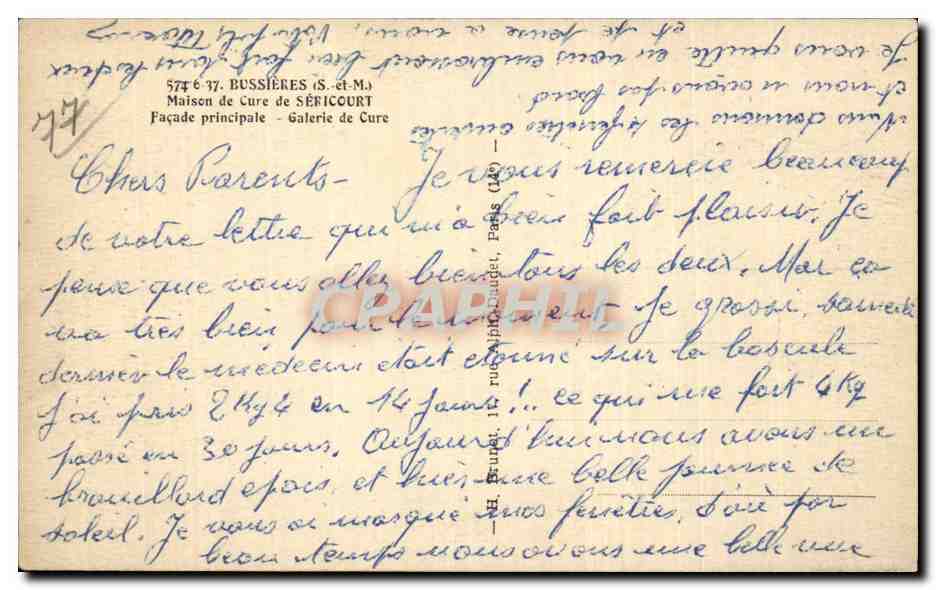 574 6-37. BUSSIÈRES (S.-et-M.)
Maison de Cure de SÉRICOURT
Façade principale - Galerie de Cure
77
— H. Brunet, rue Alph. Daudet, Paris (14e) —
CPAPHIL
Chers Parents - Je vous remercie beaucoup
de votre lettre qui m'a bien fait plaisir. Je
pense que vous allez bien tous les deux. Moi ça
va très bien pour le moment. Je grossi, samedi
dernier le médecin était étonné sur la bascule
j'ai pris 2 Kg 4 en 14 jours!.. ce qui me fait 4 Kg
passé en 30 jours. Aujourd'hui nous avons un
brouillard epais, et hier une belle journée de
soleil. Je vous ai marqué mes fenêtres, d'où par
beau temps nous avons une belle vue
Nous dormons les fenêtres ouvertes
et nous n'avons pas froid
Je vous quitte en vous embrassant bien fort tous les deux
et je pense a vous. Votre fils